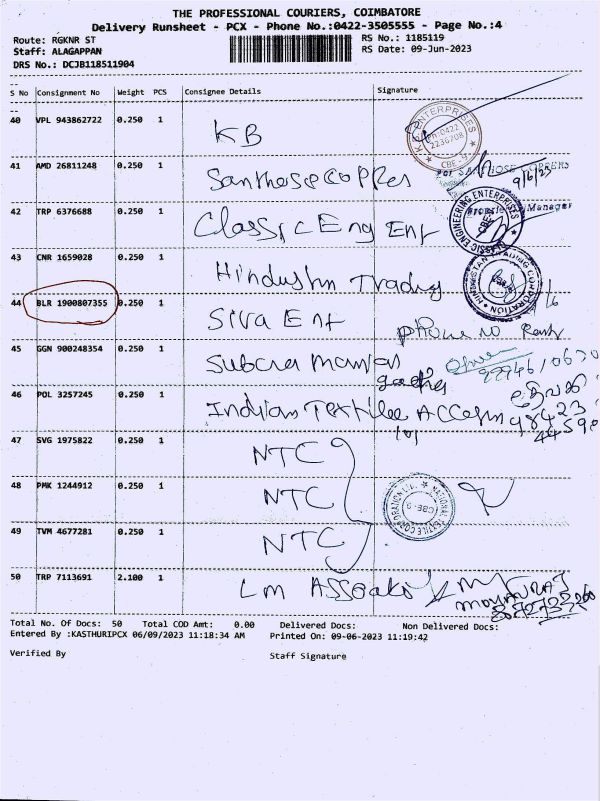 THE PROFESSIONAL COURIERS, COIMBATORE
Delivery Runsheet - PCX - Phone No.:0422-3505555 - Page No.:4
Route: RGKNR ST
RS No.: 1185119
Staff: ALAGAPPAN
RS Date: 09-Jun-2023
DRS No.: DCJB118511904
S No Consignment No Weight PCS Consignee Details Signature
40 VPL 943862722 0.250 1 KB
K.B. ENTERPRISES
Ph:0422
2236208
CBE-9
41 AMD 26811248 0.250 1 Santhose Copper
For SANTHOSE COPPERS
9/6/23
Manager
42 TRP 6376688 0.250 1 Classic Eng Ent
CLASSIC ENGINEERING ENTERPRISES
43 CNR 1659028 0.250 1 Hindustan Trading
HINDUSTAN TRADING CORPORATION
44 BLR 1900807355 0.250 1 Siva Ent
Phone no
45 GGN 900248354 0.250 1
46 POL 3257245 0.250 1 Indian Textile
98423
44590
47 SVG 1975822 0.250 1 NTC
48 PMK 1244912 0.250 1 NTC
NATIONAL TEXTILE CORPORATION
CBE-9
49 TVM 4677281 0.250 1 NTC
50 TRP 7113691 2.100 1 LM
Total No. Of Docs: 50 Total COD Amt: 0.00 Delivered Docs: Non Delivered Docs:
Entered By :KASTHURIPCX 06/09/2023 11:18:34 AM Printed On: 09-06-2023 11:19:42
Verified By Staff Signature